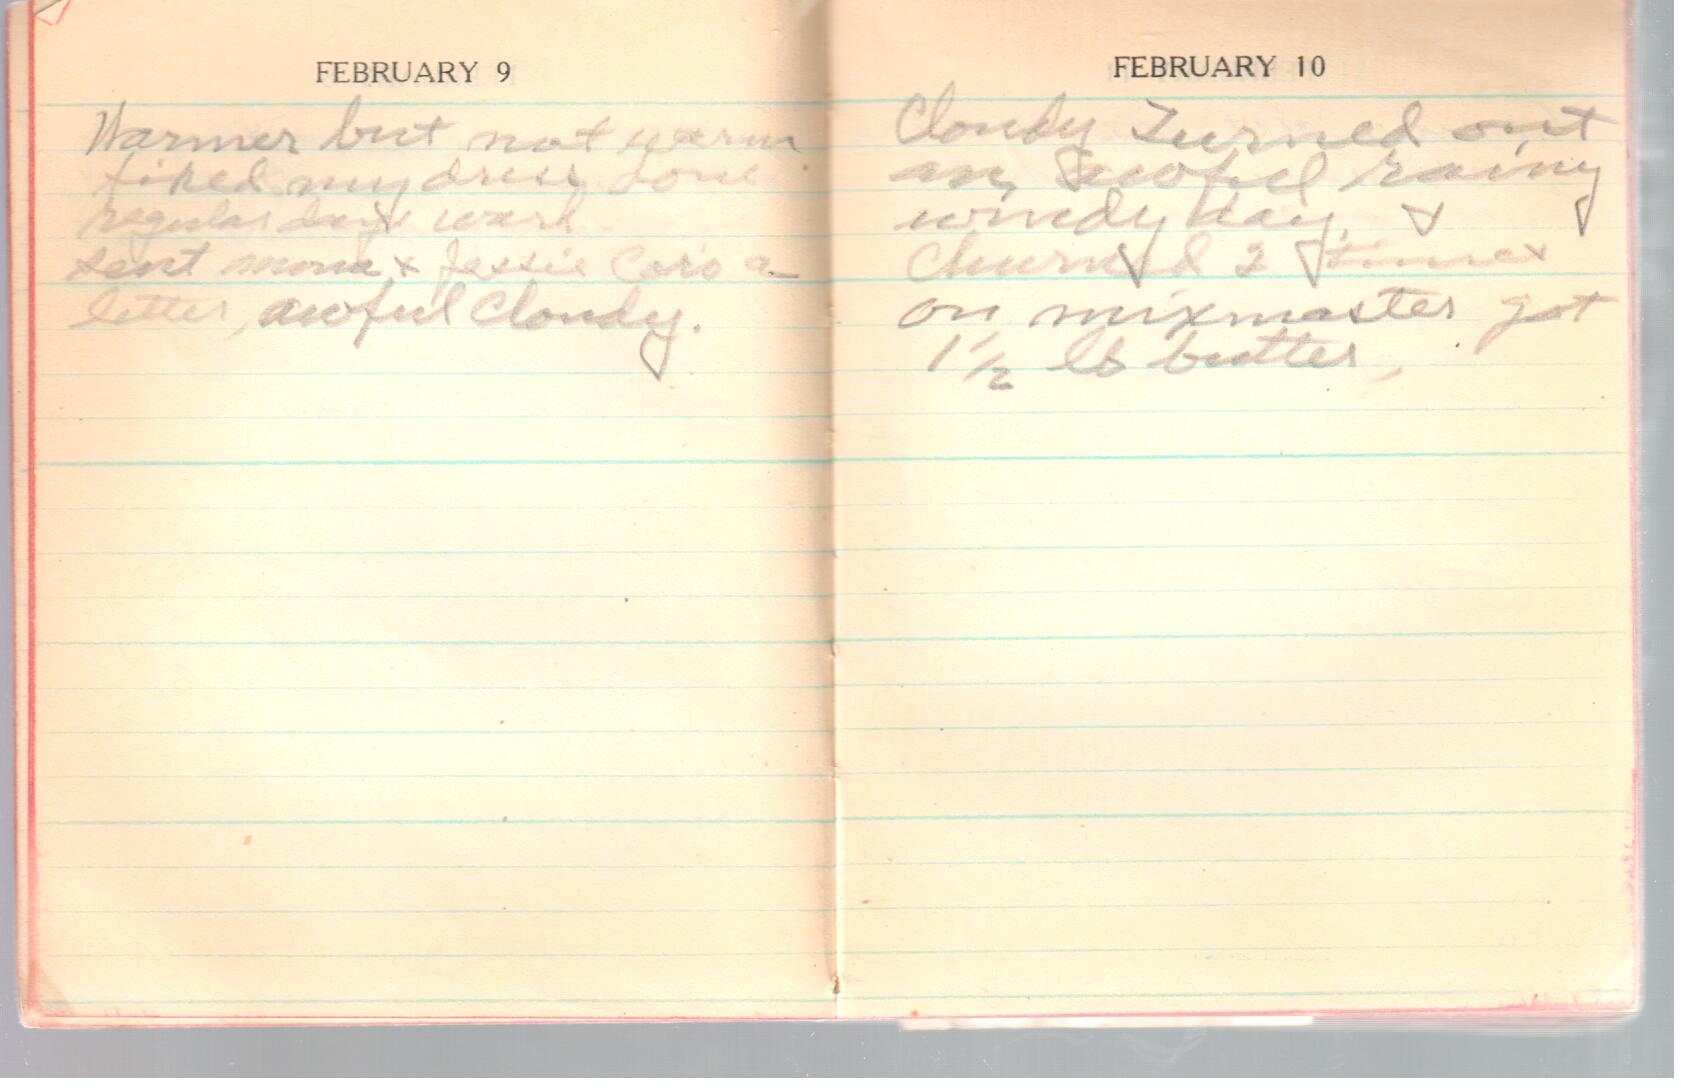 FEBRUARY 9
Warmer but not warm
fixed my dress done
regular days work
sent mone & Jessie Caro a
letter, awful Cloudy.
FEBRUARY 10
Cloudy Turned out
an awful rainy
windy day, &
Churned 2 times
on mixmaster got
1 1/2 lb butter,